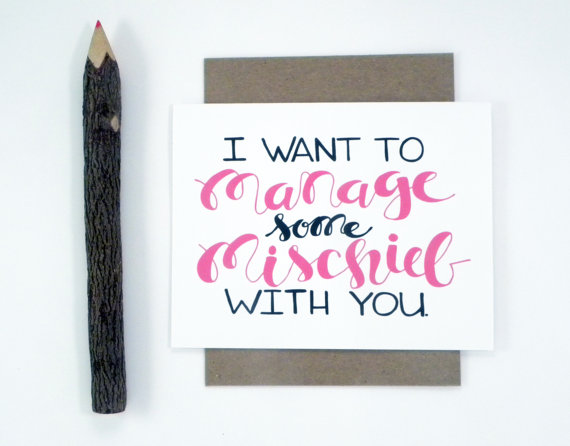 I WANT TO
Manage
some
Mischief
WITH YOU.